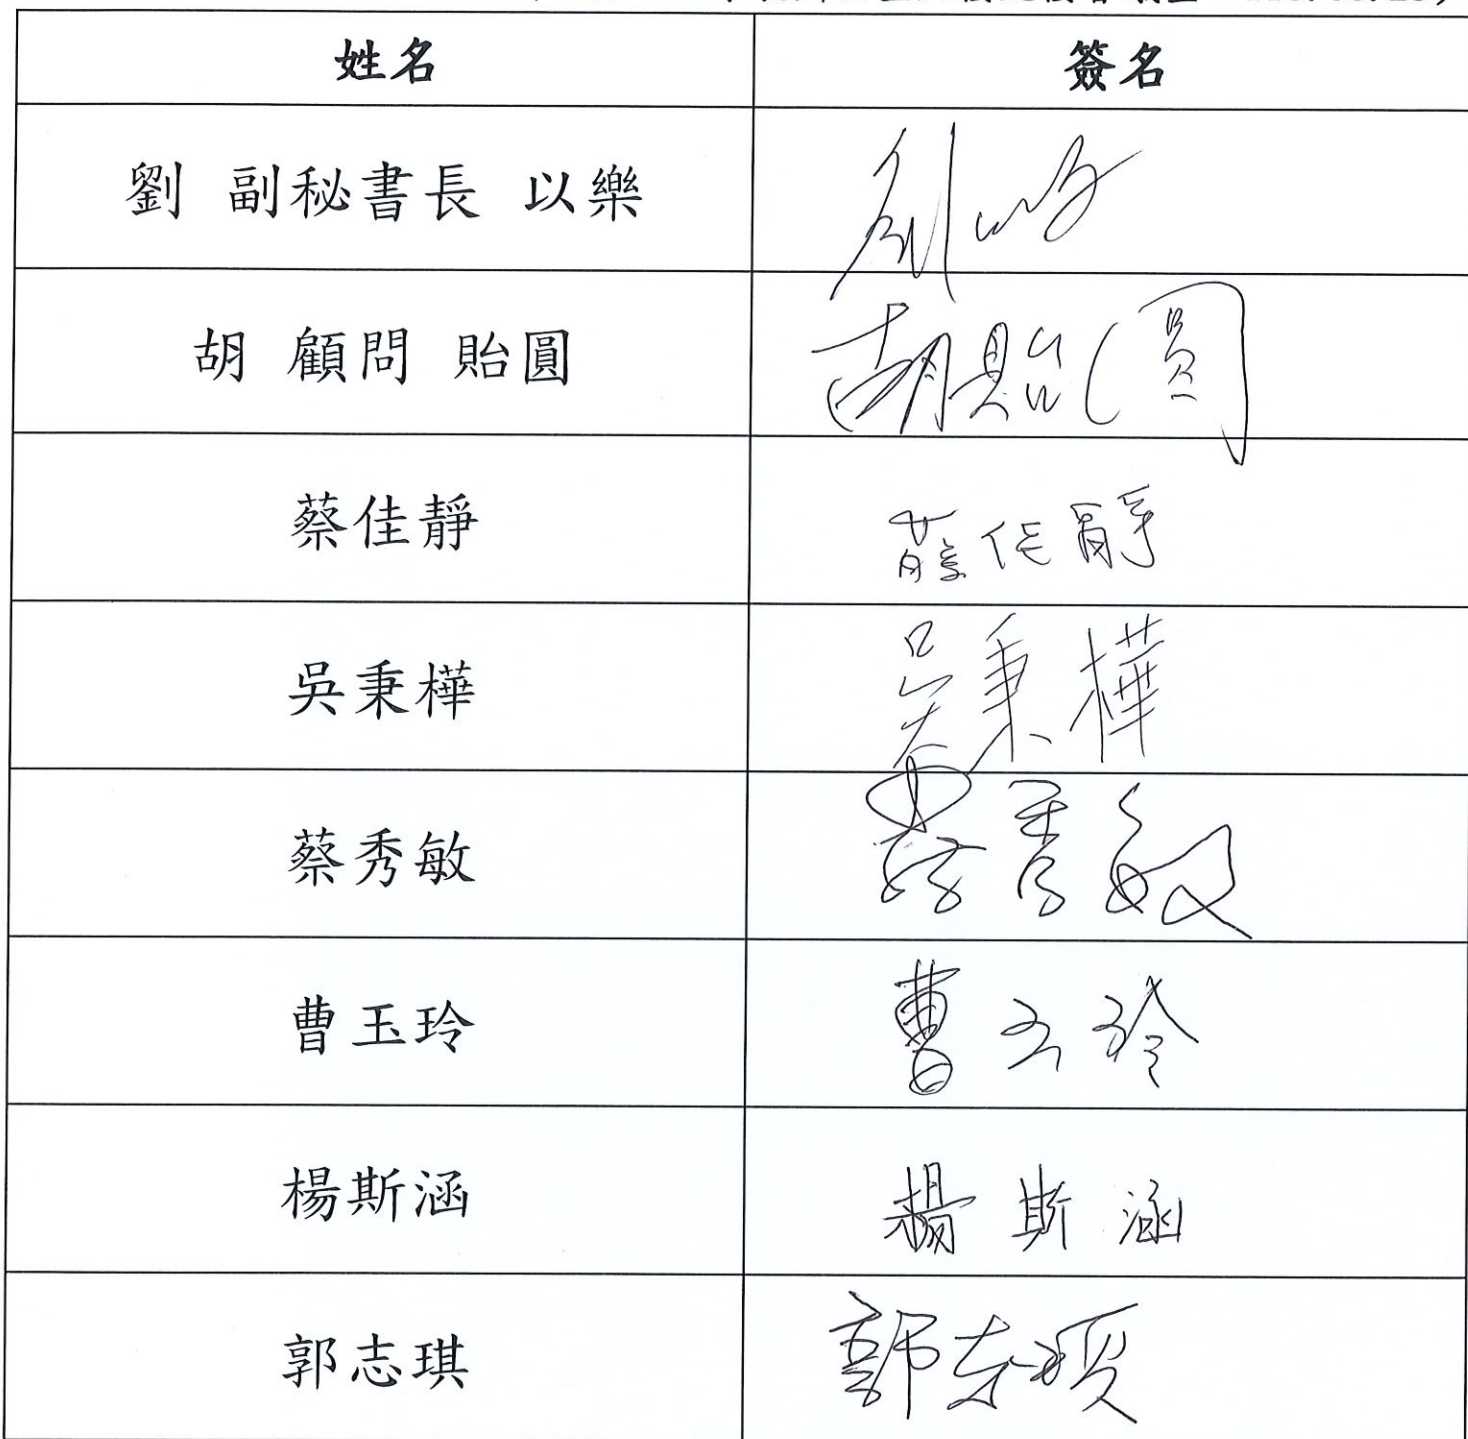 姓名 簽名
劉 副秘書長 以樂 劉以樂
胡 顧問 貽圓 胡貽圓
蔡佳靜 蔡佳靜
吳秉樺 吳秉樺
蔡秀敏 蔡秀敏
曹玉玲 曹玉玲
楊斯涵 楊斯涵
郭志琪 郭志琪